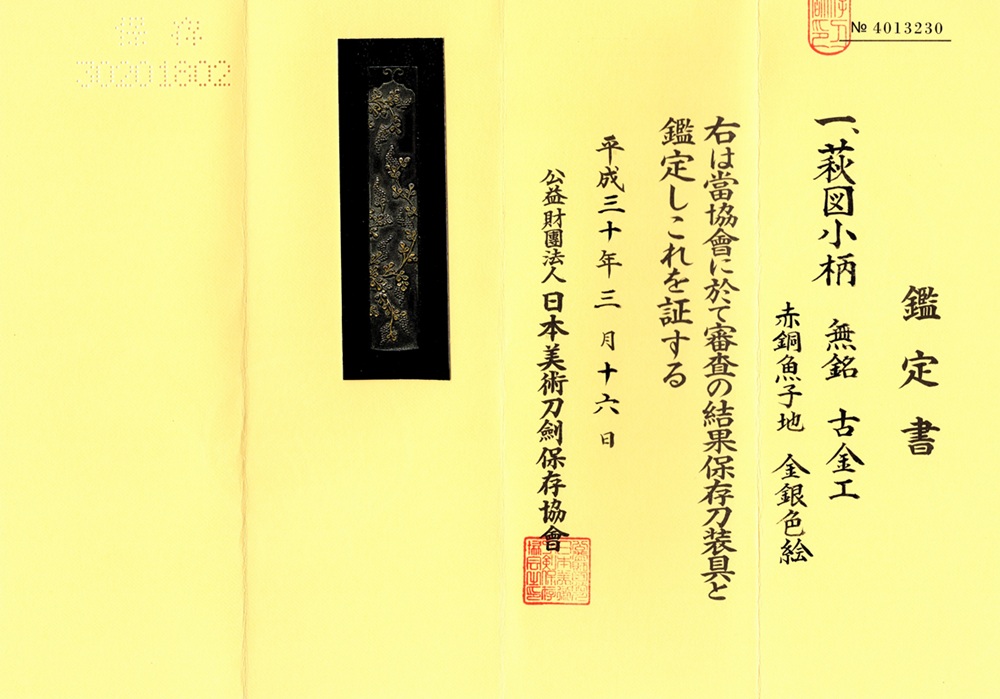 № 4013230
鑑定書
一、萩図小柄 無銘 古金工
赤銅魚子地 金銀色絵
右は當協會に於て審査の結果保存刀装具と
鑑定しこれを証する
平成三十年三月十六日
公益財團法人日本美術刀劍保存協會
保存
30201802